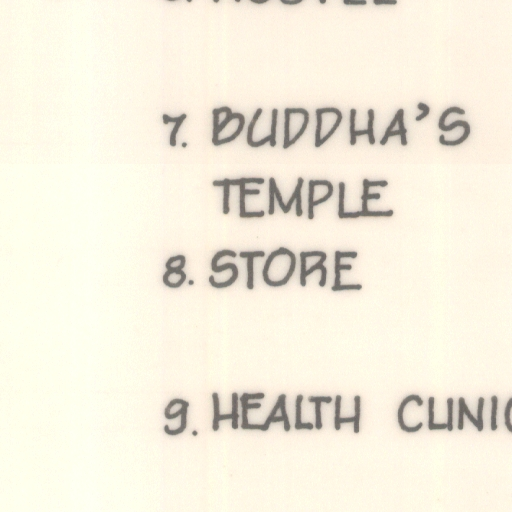 7. BUDDHA'S
TEMPLE
8. STORE
9. HEALTH CLINIC